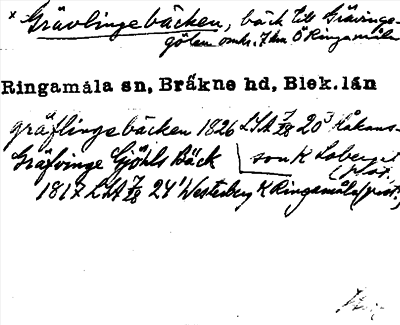 × Grävlingebäcken, bäck till Grävinge-
gölen omkr. 7 km Ö Ringamåla
Ringamåla sn, Bräkne hd, Blek.län
gräflingebäcken 1826 LSA 20³ Håkans-
Gräfvinge Gjöhls Bäck son K
1817 LSA 24' Westerberg K Ringamåla